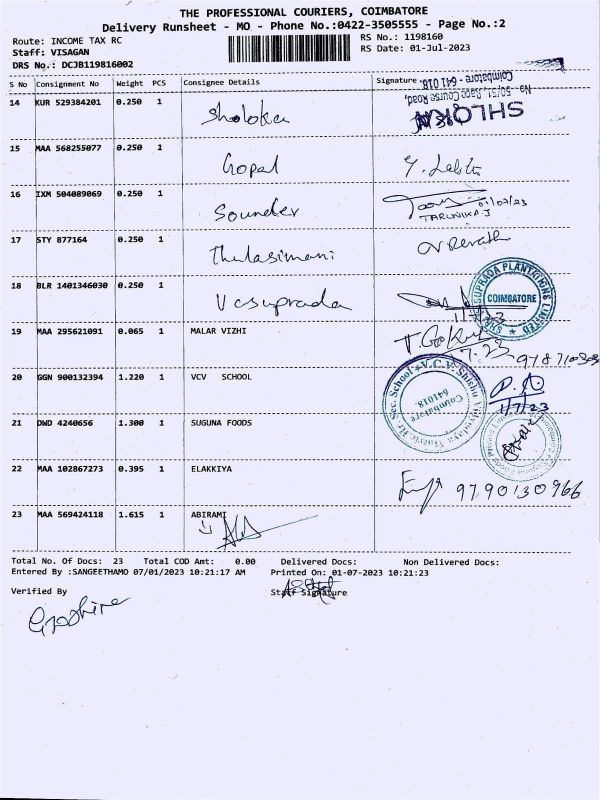 THE PROFESSIONAL COURIERS, COIMBATORE
Delivery Runsheet - MO - Phone No.:0422-3505555 - Page No.:2
Route: INCOME TAX RC
RS No.: 1198160
Staff: VISAGAN
RS Date: 01-Jul-2023
DRS No.: DCJB119816002
S No Consignment No Weight PCS Consignee Details Signature
No- 50/51, Race Course Road,
Coimbatore - 641 018.
14 KUR 529384201 0.250 1 Sholoka SHLOKA
15 MAA 568255077 0.250 1 Gopal
16 IXM 504089069 0.250 1 Sounder 01/07/23
TARUNIKA J
17 STY 877164 0.250 1 Thulasimani Revath
18 BLR 1401346030 0.250 1 Vasuprada
SUPRADA PLANTATIONS LIMITED
COIMBATORE
19 MAA 295621091 0.065 1 MALAR VIZHI T. Gokul
20 GGN 900132394 1.220 1 VCV SCHOOL
Hr. Sec. School
Coimbatore
641018.
1/7/23
21 DWD 4240656 1.300 1 SUGUNA FOODS
22 MAA 102867273 0.395 1 ELAKKIYA 9790130966
23 MAA 569424118 1.615 1 ABIRAMI
Total No. Of Docs: 23 Total COD Amt: 0.00 Delivered Docs: Non Delivered Docs:
Entered By :SANGEETHAMO 07/01/2023 10:21:17 AM Printed On: 01-07-2023 10:21:23
Verified By Staff Signature